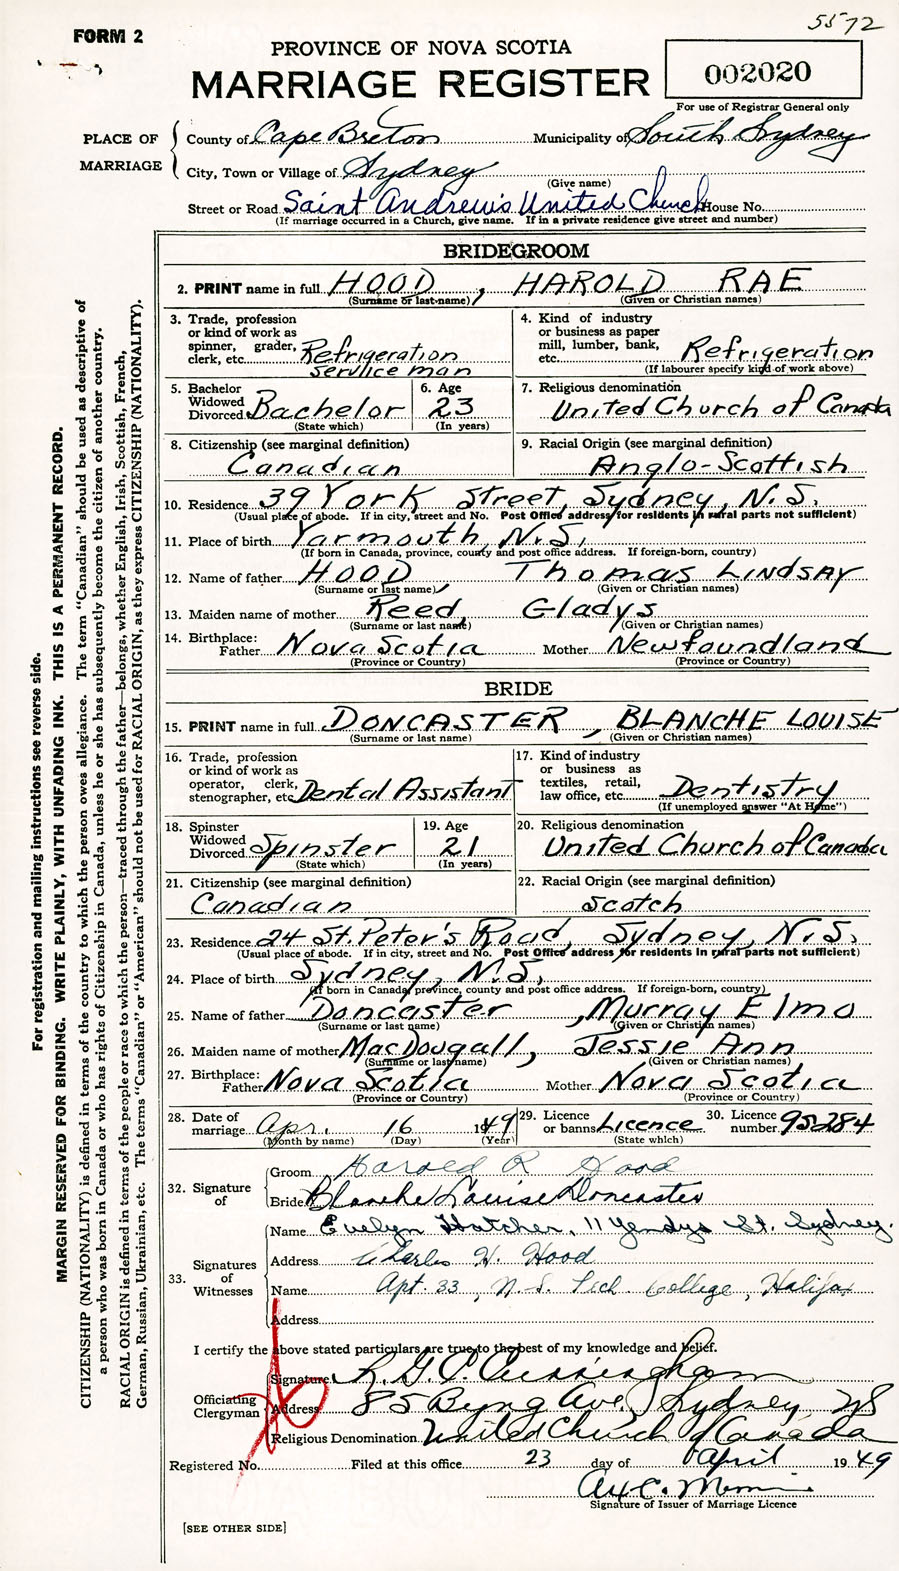 5572
FORM 2
PROVINCE OF NOVA SCOTIA
MARRIAGE REGISTER
002020
For use of Registrar General only
PLACE OF MARRIAGE
County of Cape Breton Municipality of South Sydney
City, Town or Village of Sydney
(Give name)
Street or Road Saint Andrew's United Church House No.
(If marriage occurred in a Church, give name. If in a private residence give street and number)
BRIDEGROOM
2. PRINT name in full HOOD, HAROLD RAE
(Surname or last name) (Given or Christian names)
3. Trade, profession or kind of work as spinner, grader, clerk, etc. Refrigeration service man
4. Kind of industry or business as paper mill, lumber, bank, etc. Refrigeration
(If labourer specify kind of work above)
5. Bachelor Widowed Divorced Bachelor
(State which)
6. Age 23
(In years)
7. Religious denomination
United Church of Canada
8. Citizenship (see marginal definition)
Canadian
9. Racial Origin (see marginal definition)
Anglo-Scottish
10. Residence 39 York Street, Sydney, N.S.
(Usual place of abode. If in city, street and No. Post Office address for residents in rural parts not sufficient)
11. Place of birth Yarmouth, N.S.
(If born in Canada, province, county and post office address. If foreign-born, country)
12. Name of father HOOD, Thomas LINDSAY
(Surname or last name) (Given or Christian names)
13. Maiden name of mother Reed, Gladys
(Surname or last name) (Given or Christian names)
14. Birthplace: Father Nova Scotia Mother Newfoundland
(Province or Country) (Province or Country)
BRIDE
15. PRINT name in full DONCASTER, BLANCHE LOUISE
(Surname or last name) (Given or Christian names)
16. Trade, profession or kind of work as operator, clerk, stenographer, etc. Dental Assistant
17. Kind of industry or business as textiles, retail, law office, etc. Dentistry
(If unemployed answer "At Home")
18. Spinster Widowed Divorced Spinster
(State which)
19. Age 21
(In years)
20. Religious denomination
United Church of Canada
21. Citizenship (see marginal definition)
Canadian
22. Racial Origin (see marginal definition)
Scotch
23. Residence 24 St. Peter's Road, Sydney, N.S.
(Usual place of abode. If in city, street and No. Post Office address for residents in rural parts not sufficient)
24. Place of birth Sydney, N.S.
(If born in Canada, province, county and post office address. If foreign-born, country)
25. Name of father Doncaster, Murray Elmo
(Surname or last name) (Given or Christian names)
26. Maiden name of mother MacDougall, Jessie Ann
(Surname or last name) (Given or Christian names)
27. Birthplace: Father Nova Scotia Mother Nova Scotia
(Province or Country) (Province or Country)
28. Date of marriage Apr. 16 1949
(Month by name) (Day) (Year)
29. Licence or banns Licence
(State which)
30. Licence number 95284
32. Signature of
Groom Harold R Hood
Bride Blanche Louise Doncaster
33. Signatures of Witnesses
Name Evelyn Hatcher, 11 Yendys St. Sydney.
Address Charles H. Hood
Name Apt. 33, N.S. Tech. College, Halifax
Address
I certify the above stated particulars are true to the best of my knowledge and belief.
Officiating Clergyman
Signature R.G.P. Cunningham
Address 85 Byng Ave, Sydney NS
Religious Denomination United Church of Canada
Registered No. Filed at this office 23 day of April 1949
Signature of Issuer of Marriage Licence
[SEE OTHER SIDE]
For registration and mailing instructions see reverse side.
MARGIN RESERVED FOR BINDING. WRITE PLAINLY, WITH UNFADING INK. THIS IS A PERMANENT RECORD.
CITIZENSHIP (NATIONALITY) is defined in terms of the country to which the person owes allegiance. The term "Canadian" should be used as descriptive of
a person who was born in Canada or who has rights of Citizenship in Canada, unless he or she has subsequently become the citizen of another country.
RACIAL ORIGIN is defined in terms of the people or race to which the person—traced through the father—belongs, whether English, Irish, Scottish, French,
German, Russian, Ukrainian, etc. The terms "Canadian" or "American" should not be used for RACIAL ORIGIN, as they express CITIZENSHIP (NATIONALITY).